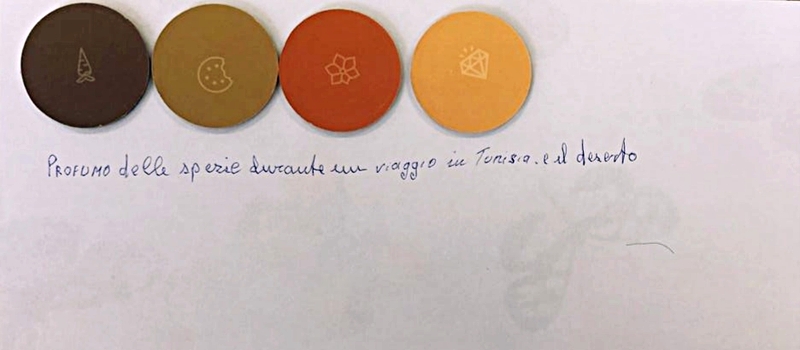 PROFUMO delle spezie durante un viaggio in Tunisia. e il deserto